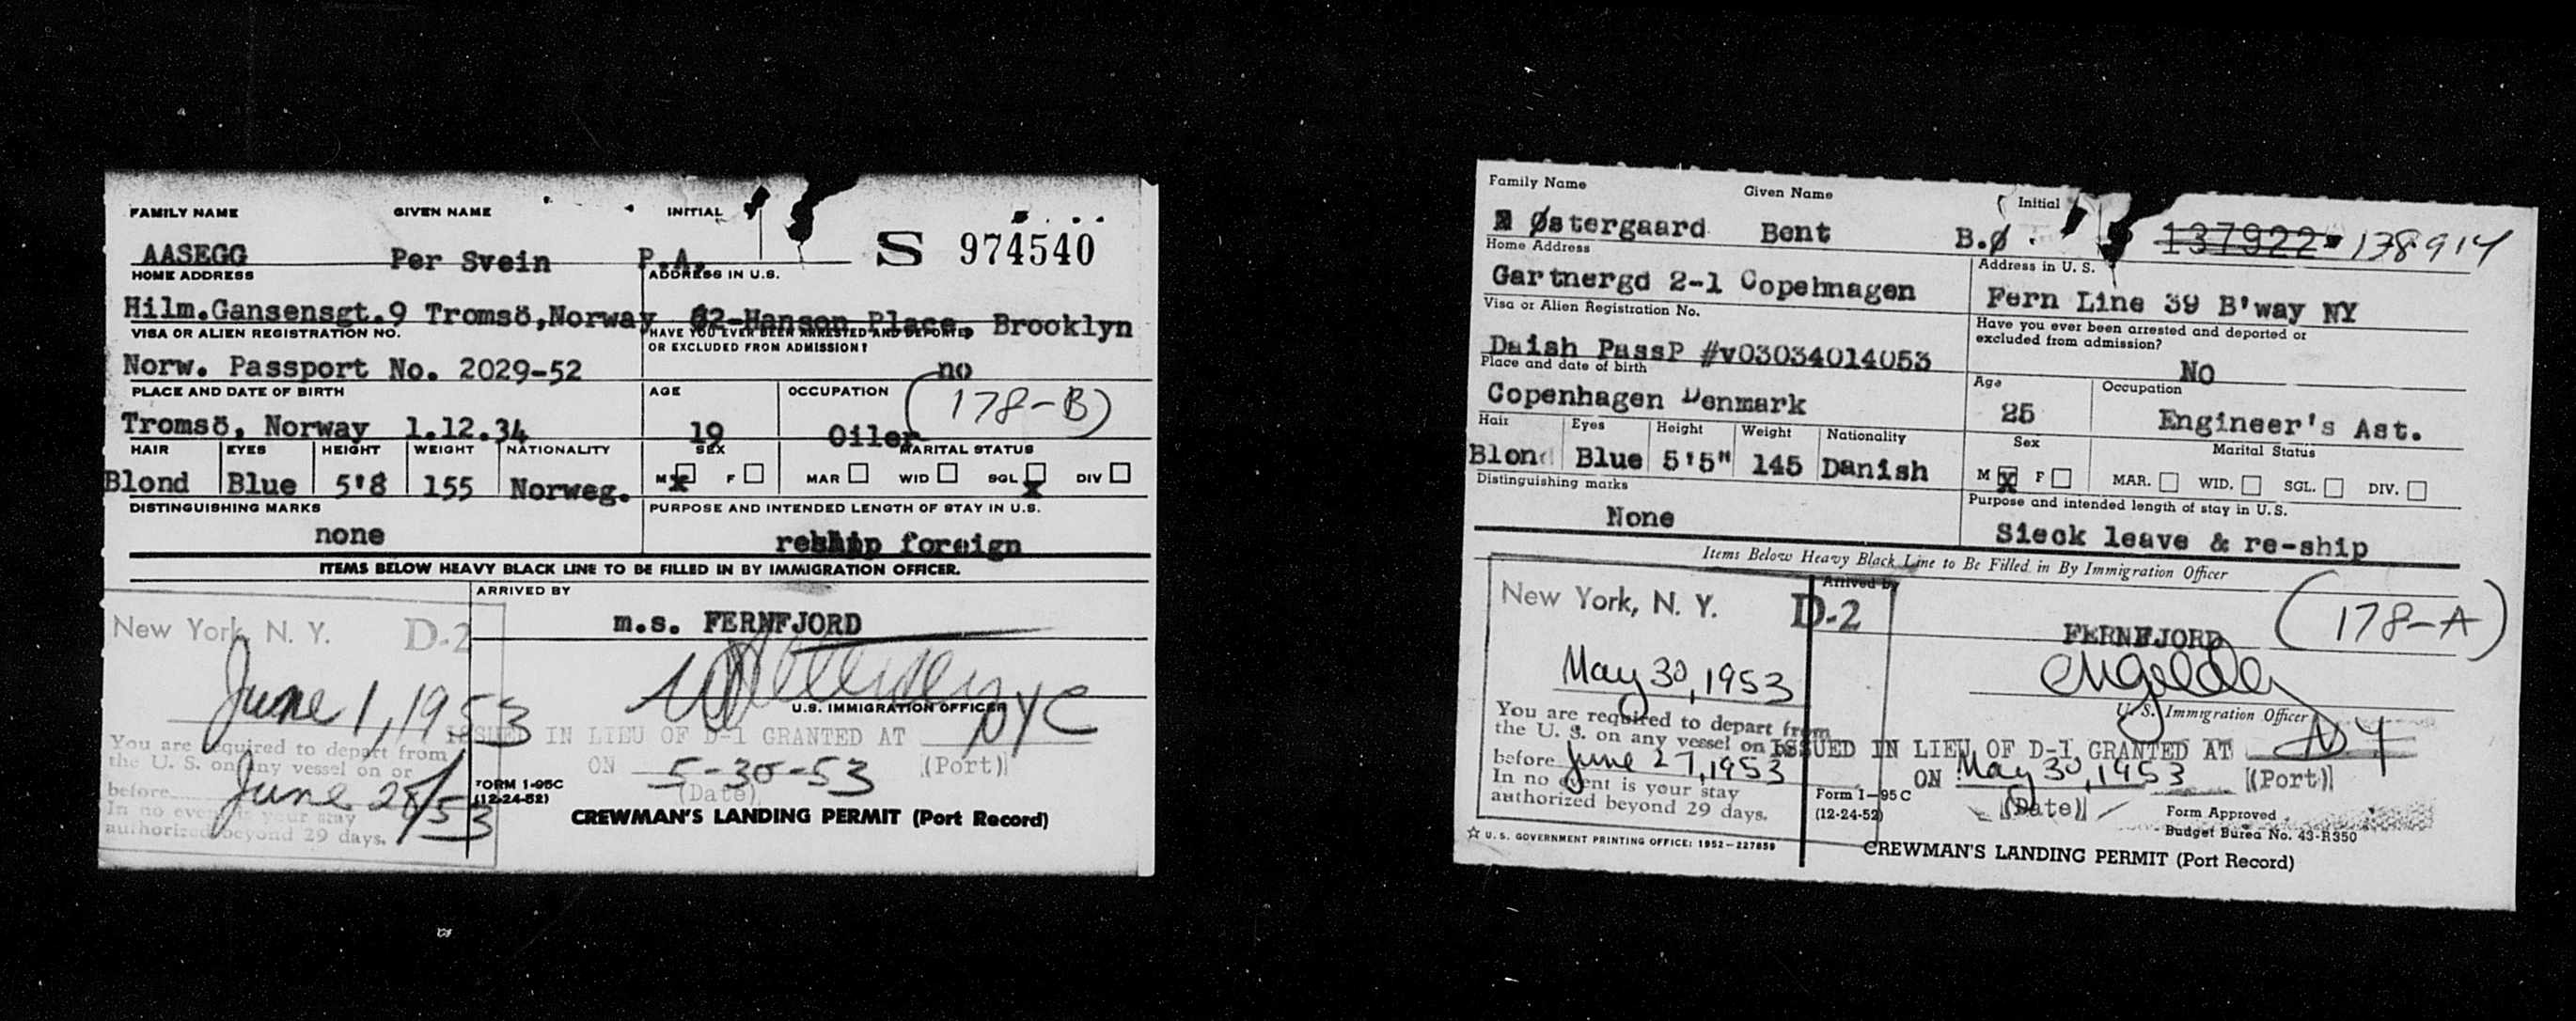 FAMILY NAME GIVEN NAME INITIAL
AASEGG Per Svein P.A. S 974540
HOME ADDRESS ADDRESS IN U.S.
Hilm.Gansensgt.9 Tromsö,Norway 62-Hanson Place, Brooklyn
VISA OR ALIEN REGISTRATION NO. HAVE YOU EVER BEEN ARRESTED AND DEPORTED
OR EXCLUDED FROM ADMISSION?
Norw. Passport No. 2029-52 no
PLACE AND DATE OF BIRTH AGE OCCUPATION (178-B)
Tromsö, Norway 1.12.34 19 Oiler
HAIR EYES HEIGHT WEIGHT NATIONALITY SEX MARITAL STATUS
Blond Blue 5'8 155 Norweg. M x F MAR WID SGL x DIV
DISTINGUISHING MARKS PURPOSE AND INTENDED LENGTH OF STAY IN U.S.
none reship foreign
ITEMS BELOW HEAVY BLACK LINE TO BE FILLED IN BY IMMIGRATION OFFICER.
ARRIVED BY
New York, N. Y. D-2 m.s. FERNFJORD
June 1, 1953
U.S. IMMIGRATION OFFICER
ISSUED IN LIEU OF D-1 GRANTED AT NYC
You are required to depart from
the U. S. on any vessel on or ON 5-30-53 (Port)
before June 28/53 (Date)
In no event is your stay
authorized beyond 29 days.
FORM 1-95C
(12-24-52)
CREWMAN'S LANDING PERMIT (Port Record)
Family Name Given Name Initial
Østergaard Bent B.Ø. 137922 138914
Home Address Address in U. S.
Gartnergd 2-1 Copehnagen Fern Line 39 B'way NY
Visa or Alien Registration No. Have you ever been arrested and deported or
excluded from admission?
Daish PassP #v03034014053 NO
Place and date of birth Age Occupation
Copenhagen Denmark 25 Engineer's Ast.
Hair Eyes Height Weight Nationality Sex Marital Status
Blond Blue 5'5" 145 Danish M X F MAR. WID. SGL. DIV.
Distinguishing marks Purpose and intended length of stay in U.S.
None Sieck leave & re-ship
Items Below Heavy Black Line to Be Filled in By Immigration Officer
Arrived by
New York, N. Y. D-2 FERNFJORD (178-A)
May 30, 1953
U. S. Immigration Officer
You are required to depart from
the U. S. on any vessel on or ISSUED IN LIEU OF D-1 GRANTED AT NY
before June 27, 1953 ON May 30, 1953 (Port)
In no event is your stay (Date)
authorized beyond 29 days.
Form I-95C
(12-24-52)
Form Approved
Budget Burea No. 43-R350
☆ U. S. GOVERNMENT PRINTING OFFICE: 1952-227859
CREWMAN'S LANDING PERMIT (Port Record)